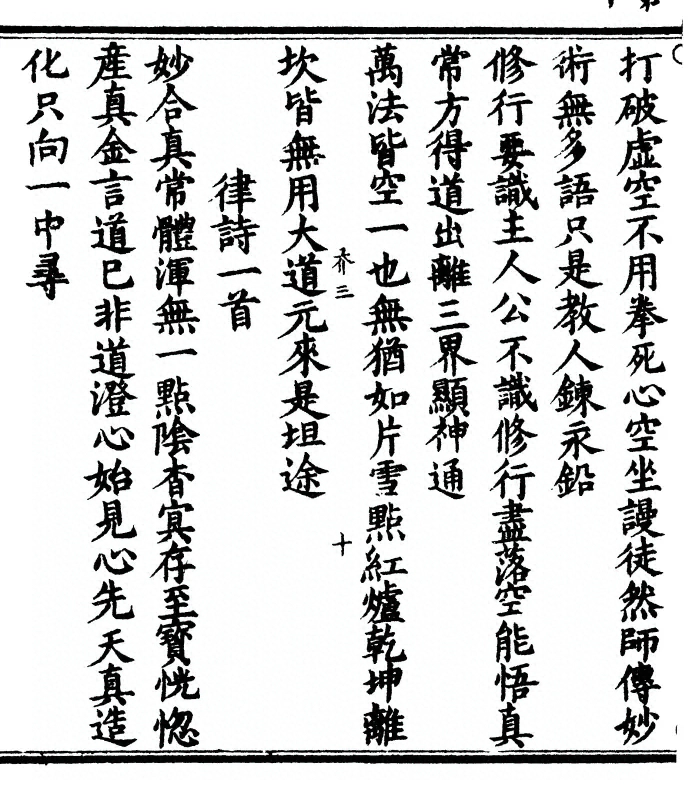 打破虛空不用拳死心空坐謾徒然師傳妙
術無多語只是教人鍊汞鉛
修行要識主人公不識修行盡落空能悟真
常方得道出離三界顯神通
萬法皆空一也無猶如片雪點紅爐乾坤離
坎皆無用大道元來是坦途
律詩一首
妙合真常體渾無一點陰杳冥存至寶恍惚
產真金言道已非道澄心始見心先天真造
化只向一中尋
三
十